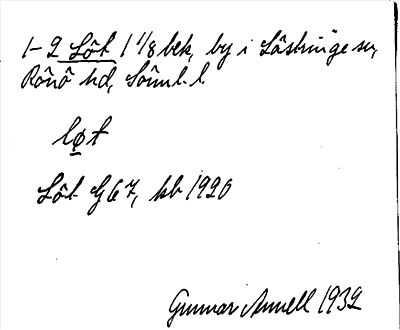 1-2 Löt 1 1/8 bek, by i Lästringe sn,
Rönö hd, Söml. l.
løt
Löt G 67, kb 1920
Gunnar Annell 1932